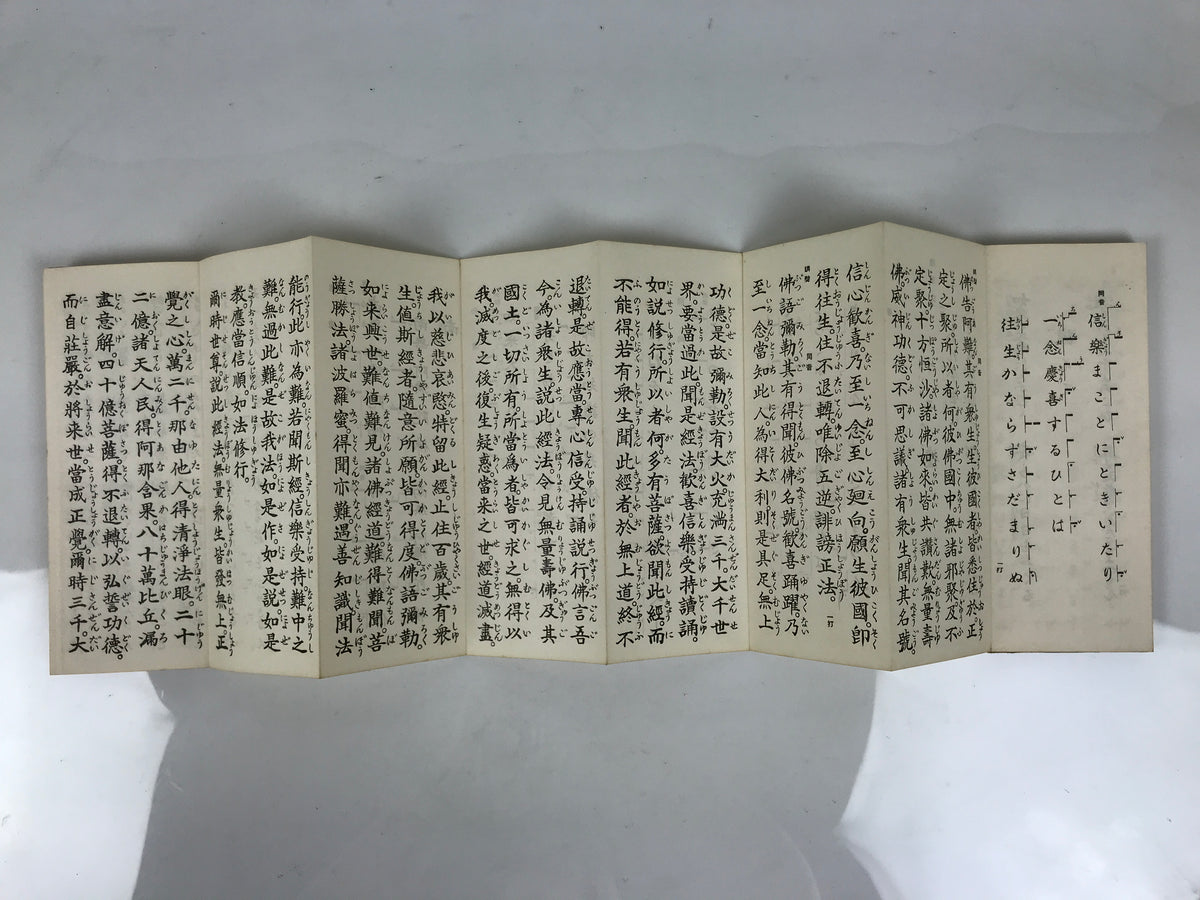 同音
信樂まことにときいたり
一念慶喜するひとは
往生かならずさだまりぬ 一打
佛告阿難其有衆生生彼國者皆悉住於正
定之聚。所以者何。彼佛國中無諸邪聚及不
定聚。十方恒沙諸佛如來皆共讚歎。無量壽
佛。威神功德。不可思議。諸有衆生聞其名號。
信心歡喜。乃至一念。至心廻向。願生彼國。卽
得往生。住不退轉。唯除五逆。誹謗正法。 一打
調聲 同音
佛語彌勒。其有得聞彼佛名號。歡喜踊躍。乃
至一念。當知此人。為得大利。則是具足。無上
功德。是故彌勒。設有大火。充滿三千大千世
界。要當過此。聞是經法。歡喜信樂。受持讀誦。
如說修行。所以者何。多有菩薩。欲聞此經。而
不能得。若有衆生聞此經者。於無上道。終不
退轉。是故應當專心信受。持誦說行。佛言吾
今為諸衆生。說此經法。令見無量壽佛及其
國土。一切所有。所當為者。皆可求之。無得以
我。滅度之後。復生疑惑。當来之世。經道滅盡。
我以慈悲哀愍。特留此經。止住百歳。其有衆
生。値斯經者。隨意所願。皆可得度。佛語彌勒。
如来興世。難値難見。諸佛經道。難得難聞。菩
薩勝法。諸波羅蜜。得聞亦難。遇善知識。聞法
能行。此亦為難。若聞斯經。信樂受持。難中之
難。無過此難。是故我法。如是作。如是說。如是
教。應當信順。如法修行。
爾時世尊。說此經法。無量衆生。皆發無上正
覺之心。萬二千那由他人。得清淨法眼。二十
二億。諸天人民。得阿那含果。八十萬比丘。漏
盡意解。四十億菩薩。得不退轉。以弘誓功德。
而自莊嚴。於將来世。當成正覺。爾時三千大